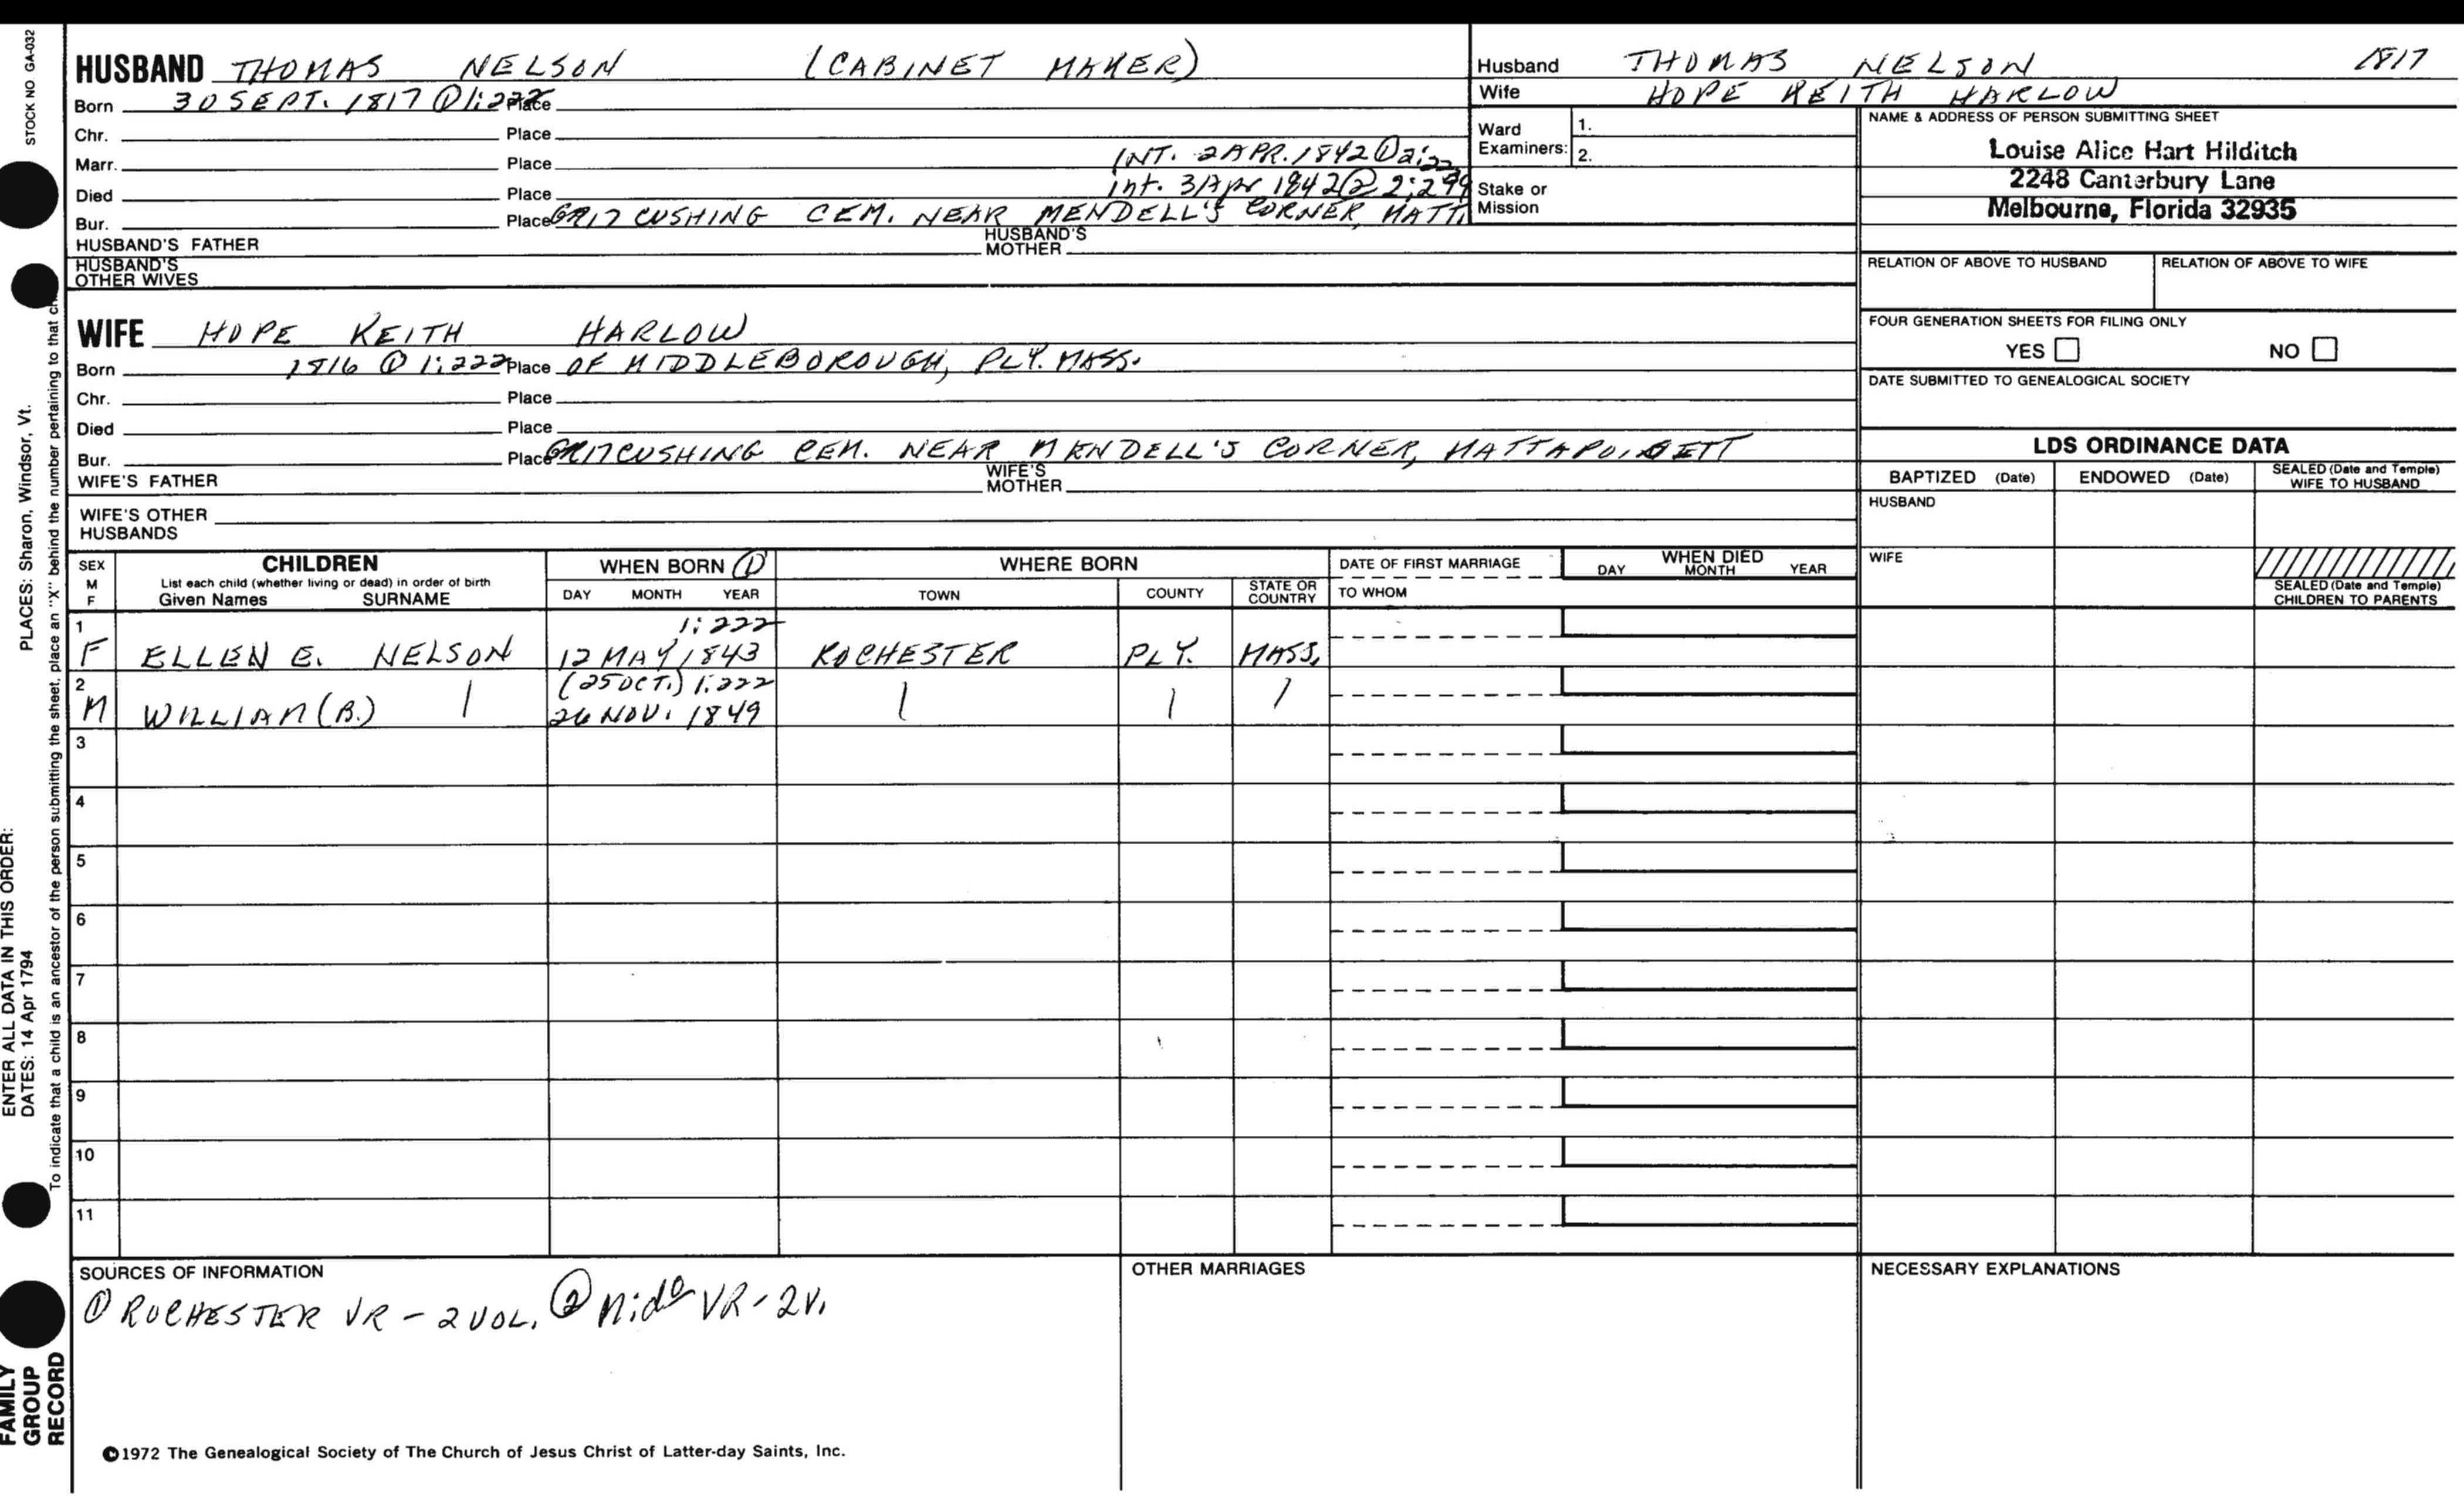 STOCK NO GA-032
HUSBAND THOMAS NELSON (CABINET MAKER)
Born 30 SEPT. 1817 ① 1:222 Place
Chr. Place
Marr. Place INT. 2 APR. 1842 ① 2:22
Died Place int. 3 Apr 1842 ② 2:299
Bur. Place GR17 CUSHING CEM. NEAR MENDELL'S CORNER, MATT.
HUSBAND'S FATHER HUSBAND'S MOTHER
HUSBAND'S OTHER WIVES
WIFE HOPE KEITH HARLOW
Born 1816 ① 1:222 Place OF MIDDLEBOROUGH, PLY. MASS.
Chr. Place
Died Place
Bur. Place GR17 CUSHING CEM. NEAR MENDELL'S CORNER, MATTAPOISETT
WIFE'S FATHER WIFE'S MOTHER
WIFE'S OTHER HUSBANDS
Husband THOMAS NELSON 1817
Wife HOPE KEITH HARLOW
Ward Examiners: 1.
2.
Stake or Mission
NAME & ADDRESS OF PERSON SUBMITTING SHEET
Louise Alice Hart Hilditch
2248 Canterbury Lane
Melbourne, Florida 32935
RELATION OF ABOVE TO HUSBAND RELATION OF ABOVE TO WIFE
FOUR GENERATION SHEETS FOR FILING ONLY
YES NO
DATE SUBMITTED TO GENEALOGICAL SOCIETY
LDS ORDINANCE DATA
BAPTIZED (Date) ENDOWED (Date) SEALED (Date and Temple) WIFE TO HUSBAND
HUSBAND
WIFE
SEALED (Date and Temple) CHILDREN TO PARENTS
SEX M F CHILDREN WHEN BORN ① WHERE BORN DATE OF FIRST MARRIAGE WHEN DIED
List each child (whether living or dead) in order of birth
Given Names SURNAME DAY MONTH YEAR TOWN COUNTY STATE OR COUNTRY TO WHOM DAY MONTH YEAR
1 1:222
F ELLEN E. NELSON 12 MAY 1843 ROCHESTER PLY. MASS.
2 (25 OCT.) 1:222
M WILLIAM (B.) | 26 NOV. 1849 | | |
3
4
5
6
7
8
9
10
11
SOURCES OF INFORMATION
① ROCHESTER VR - 2 VOL. ② Mido VR - 2 V.
OTHER MARRIAGES
NECESSARY EXPLANATIONS
©1972 The Genealogical Society of The Church of Jesus Christ of Latter-day Saints, Inc.
FAMILY GROUP RECORD
ENTER ALL DATA IN THIS ORDER:
DATES: 14 Apr 1794 PLACES: Sharon, Windsor, Vt.
To indicate that a child is an ancestor of the person submitting the sheet, place an "X" behind the number pertaining to that